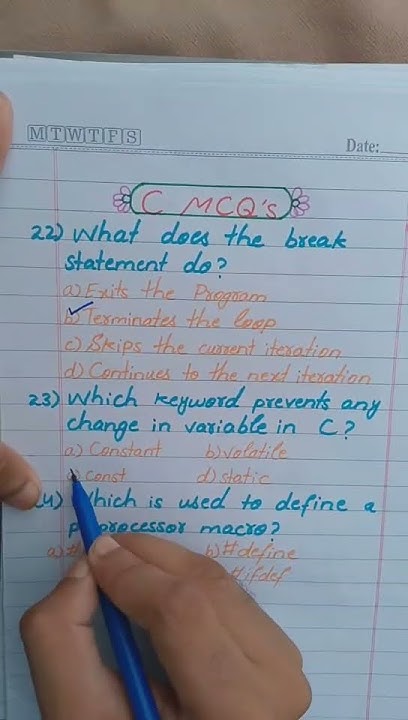 M T W T F S
Date:
C MCQ's
22) What does the break
statement do?
a) Exits the Program
b) Terminates the loop
c) Skips the current iteration
d) Continues to the next iteration
23) Which keyword prevents any
change in variable in C?
a) Constant b) volatile
const d) static
Which is used to define a
macro?
a) b) #define
#ifdef